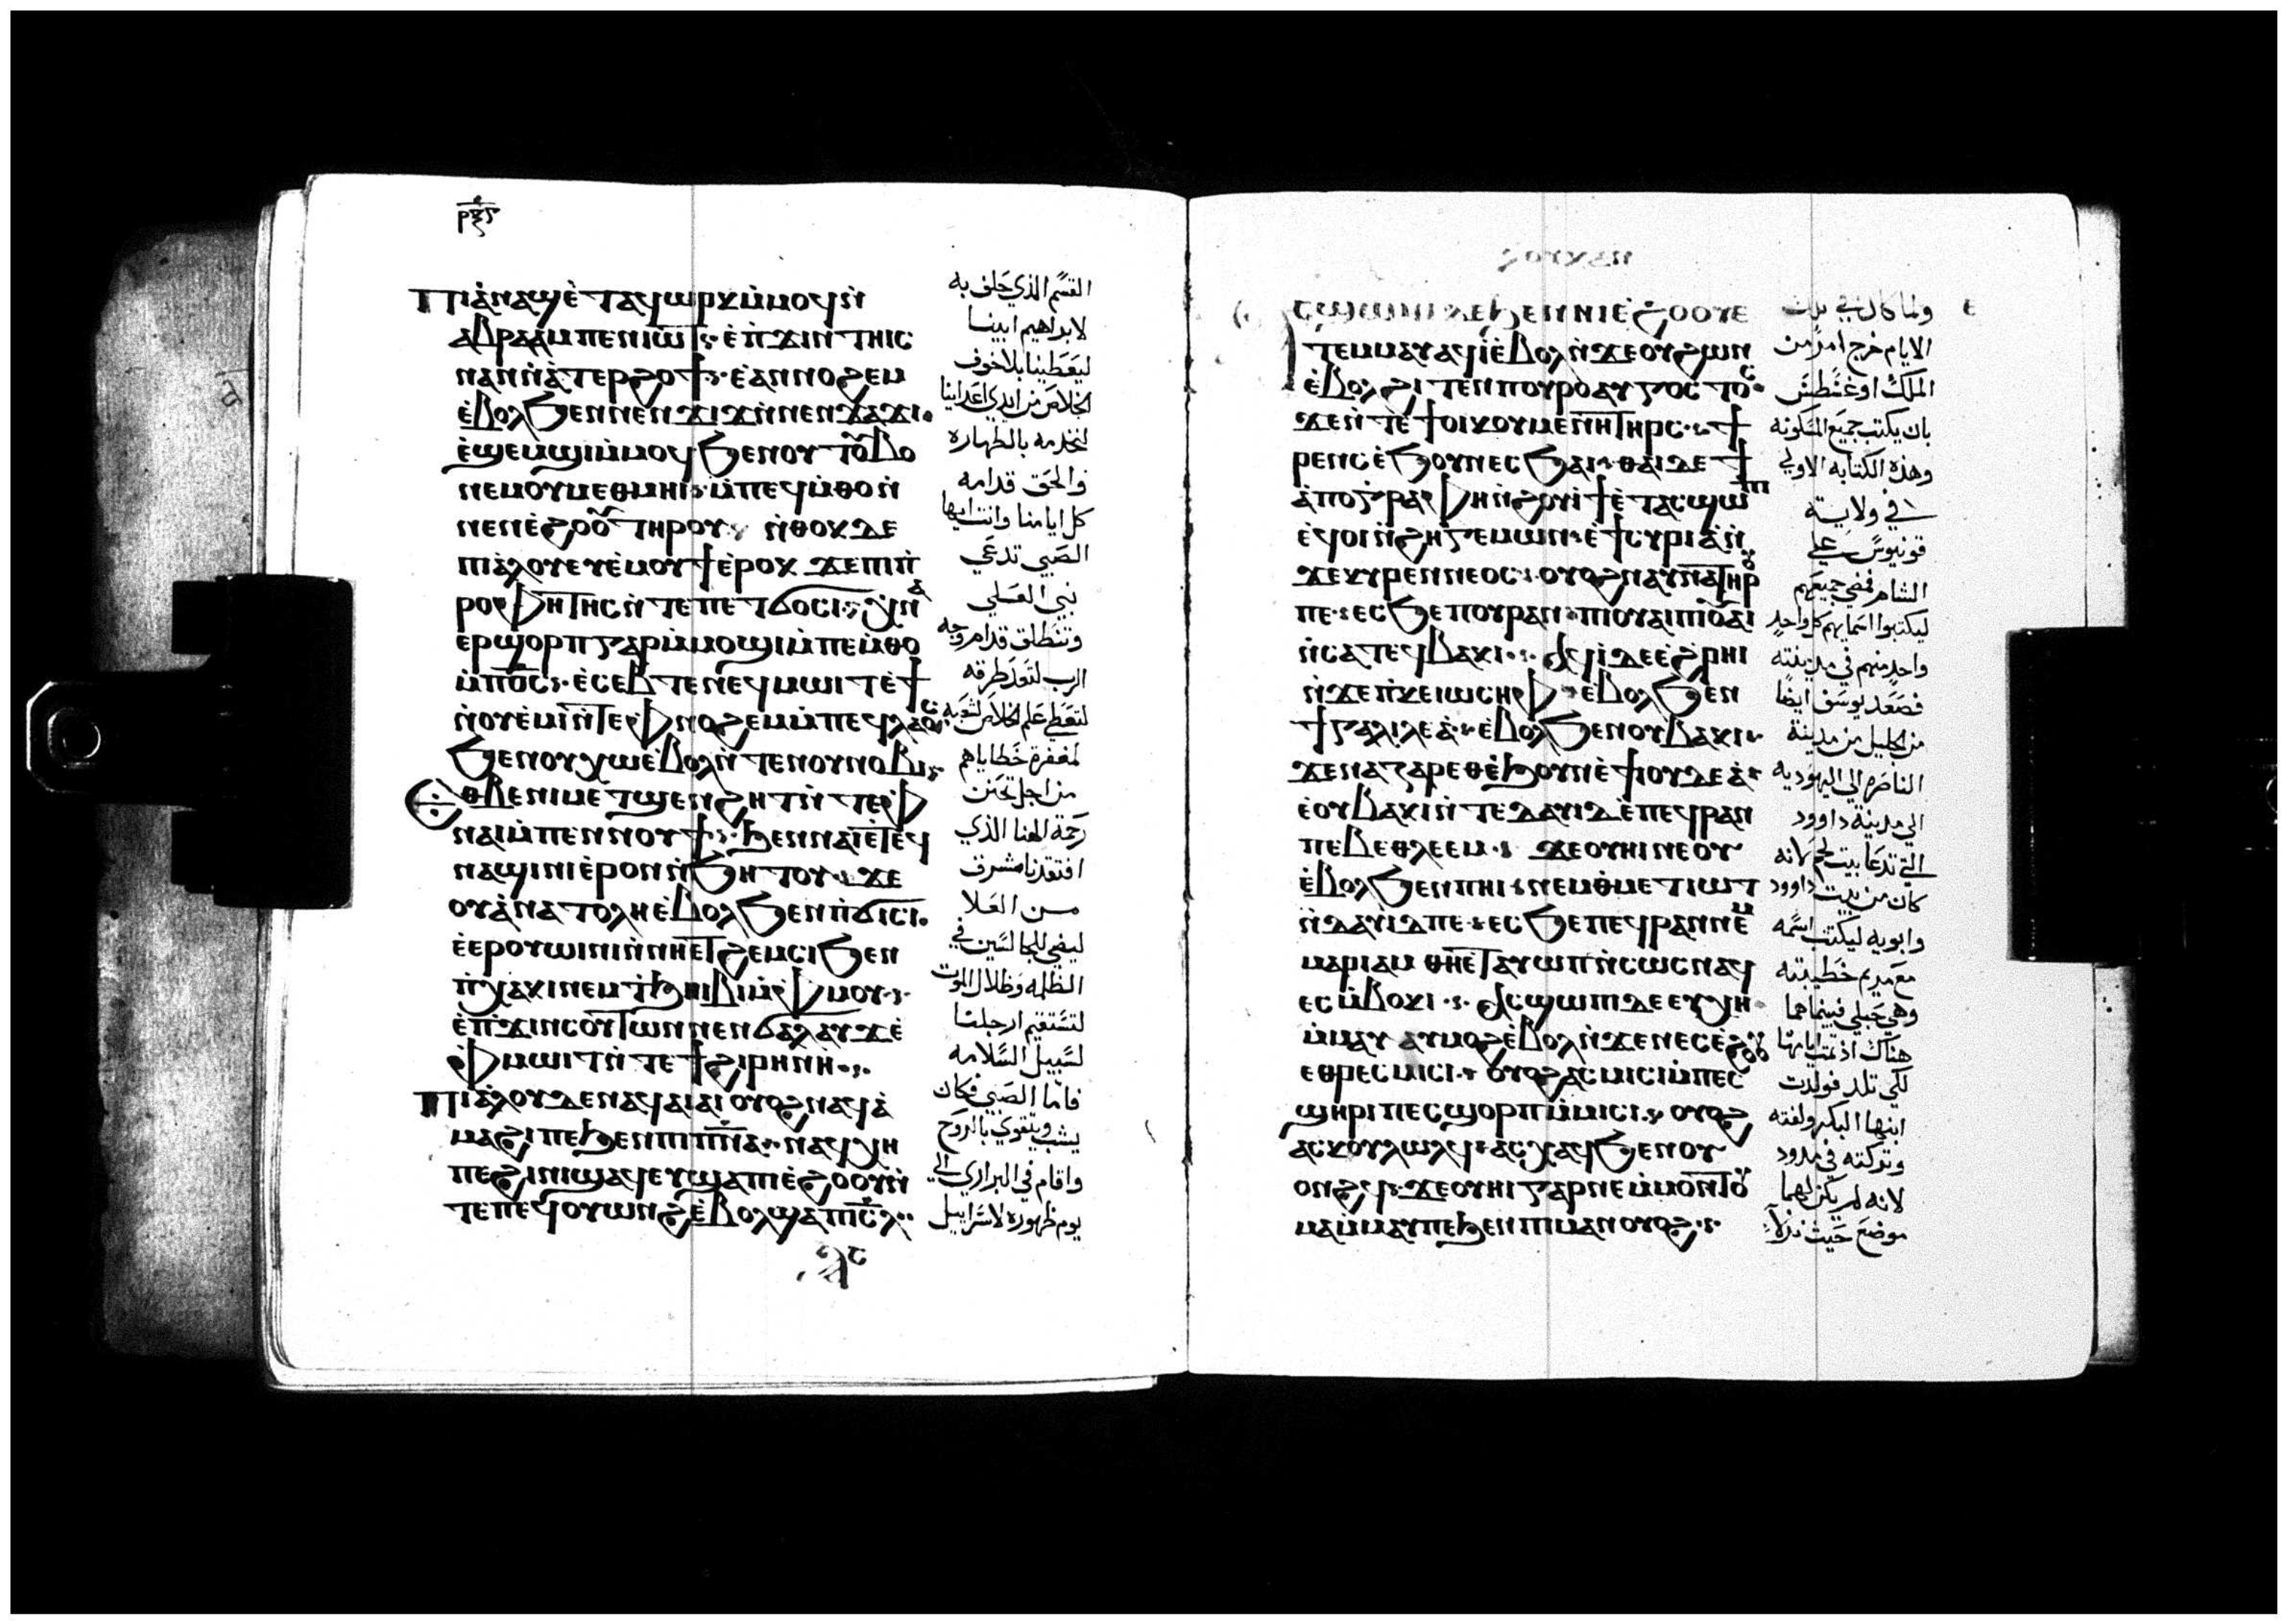 ⲣⲝⲋ
Ⲡⲓⲁ̀ⲛⲁϣ ⲉ̀ⲧⲁϥⲱⲣⲕ ⲙ̀ⲙⲟϥ ⲛ̀
ⲁⲃⲣⲁⲁⲙ ⲡⲉⲛⲓⲱⲧ ⲉ̀ⲡ̀ϫⲓⲛⲧⲏⲓⲥ
ⲛⲁⲛ ⲛ̀ⲁⲧⲉⲣϩⲟϯ ⲉⲁⲛⲛⲟϩⲉⲙ
ⲉ̀ⲃⲟⲗϧⲉⲛ ⲛⲉⲛϫⲓϫ ⲛ̀ⲛⲉⲛϫⲁϫⲓ
ⲉ̀ϣⲉⲙϣⲓ ⲙ̀ⲙⲟϥ ϧⲉⲛ ⲟⲩⲧⲟⲩⲃⲟ
ⲛⲉⲙ ⲟⲩⲙⲉⲑⲙⲏⲓ ⲙ̀ⲡⲉϥⲙ̀ⲑⲟ ⲛ̀
ⲛⲉⲛⲉ̀ϩⲟⲟⲩ ⲧⲏⲣⲟⲩ ⲛ̀ⲑⲟⲕ ⲇⲉ
ⲡⲓⲁ̀ⲗⲟⲩ ⲉⲩⲉ̀ⲙⲟⲩϯ ⲉ̀ⲣⲟⲕ ϫⲉ ⲡⲓⲡ̀
ⲣⲟⲫⲏⲧⲏⲥ ⲛ̀ⲧⲉ ⲡⲉⲧϭⲟⲥⲓ ⲭⲛⲁ
ⲉⲣϣⲟⲣⲡ ⲅⲁⲣ ⲙ̀ⲙⲟϣⲓ ⲙ̀ⲡⲉⲙ̀ⲑⲟ
ⲙ̀ⲡ⳪ ⲉ̀ⲥⲉⲃⲧⲉ ⲛⲉϥⲙⲱⲓⲧ ⲉ̀ϯ
ⲛ̀ⲟⲩⲉ̀ⲙⲓ ⲛ̀ⲧⲉ ⲫⲛⲟϩⲉⲙ ⲙ̀ⲡⲉϥⲗⲁⲟⲥ
ϧⲉⲛ ⲟⲩⲭⲱ ⲉ̀ⲃⲟⲗ ⲛ̀ⲧⲉ ⲛⲟⲩⲛⲟⲃⲓ
ⲉⲑⲃⲉ ⲛⲓⲙⲉⲧϣⲉⲛϩⲏⲧ ⲛ̀ⲧⲉ ⲫ
ⲛⲁⲓ ⲙ̀ⲡⲉⲛⲛⲟⲩϯ ϧⲉⲛ ⲛⲁⲓ ⲉ̀ⲧⲉϥ
ⲛⲁϣⲓⲛⲓ ⲉ̀ⲣⲟⲛ ⲛ̀ϧⲏⲧⲟⲩ ϫⲉ
ⲟⲩⲁ̀ⲛⲁⲧⲟⲗⲏ ⲉ̀ⲃⲟⲗϧⲉⲛ ⲡ̀ϭⲓⲥⲓ
ⲉ̀ⲉⲣⲟⲩⲱⲓⲛⲓ ⲛ̀ⲛⲏⲉⲧϩⲉⲙⲥⲓ ϧⲉⲛ
ⲡ̀ⲭⲁⲕⲓ ⲛⲉⲙ ⲧ̀ϧⲏⲓⲃⲓ ⲙ̀ⲫⲙⲟⲩ
ⲉ̀ⲡ̀ϫⲓⲛⲥⲟⲩⲧⲱⲛ ⲛⲉⲛϭⲁⲗⲁⲩϫ ⲉ̀
ⲫⲙⲱⲓⲧ ⲛ̀ⲧⲉ ϯϩⲓⲣⲏⲛⲏ
Ⲡⲓⲁ̀ⲗⲟⲩ ⲇⲉ ⲛⲁϥⲁⲓⲁⲓ ⲟⲩⲟϩ ⲛⲁϥⲁ̀
ⲙⲁϩⲓ ⲡⲉ ϧⲉⲛ ⲡⲓⲡ̅ⲛ̅ⲁ̅ ⲛⲁϥⲭⲏ
ⲡⲉ ϩⲓ ⲛⲓϣⲁϥⲉⲩ ϣⲁ ⲡⲓⲉ̀ϩⲟⲟⲩ ⲛ̀
ⲧⲉ ⲡⲉϥⲟⲩⲱⲛϩ ⲉ̀ⲃⲟⲗ ϣⲁ ⲡⲓⲥ̅ⲗ
القسم الذي حلف به
لابراهيم ابينا
ليعطينا بلا خوف
الخلاص من ايدي اعداينا
لنخدمه بالطهاره
والحق قدامه
كل ايامنا وانت ايها
الصبي تدعي
نبي العلي
وتنطلق قدام وجه
الرب لتعد طرقه
لتعطي علم الخلاص لشعبه
لمغفرة خطاياهم
من اجل تحنن
رحمة الهنا الذي
افتقدنا مشرق
من العلا
ليضي للجالسين في
الظلمه وظلال الموت
لتستقيم ارجلنا
لسبيل السلامه
فاما الصبي فكان
يشب ويتقوي بالروح
واقام في البراري الي
يوم ظهوره لاسراييل
ⲁⲥϣⲱⲡⲓ ⲇⲉ ϧⲉⲛ ⲛⲓⲉ̀ϩⲟⲟⲩ ⲉ
ⲧⲉⲙⲙⲁⲩ ⲁϥⲓ̀ ⲉ̀ⲃⲟⲗ ⲛ̀ϫⲉ ⲟⲩϩⲱⲛ
ⲉ̀ⲃⲟⲗϩⲓⲧⲉⲛ ⲡⲟⲩⲣⲟ ⲁⲩⲅⲟⲥⲧⲟⲥ
ϫⲉ ⲛ̀ⲧⲉ ϯⲟⲓⲕⲟⲩⲙⲉⲛⲏ ⲧⲏⲣⲥ ⲛ̀ϯ
ⲣⲉⲛⲥ ⲉ̀ϧⲟⲩⲛ ⲉⲥϧⲁⲓ ⲑⲁⲓ ⲇⲉ ϯ
ⲁ̀ⲡⲟⲅⲣⲁⲫⲏ ⲛ̀ϩⲟⲩⲓϯ ⲉ̀ⲧⲁⲥϣⲱⲡⲓ
ⲉϥⲟⲓ ⲛ̀ϩⲏⲅⲉⲙⲱⲛ ⲉ̀ϯⲥⲩⲣⲓⲁ ⲛ̀
ϫⲉ ⲕⲩⲣⲉⲛⲛⲉⲟⲥ ⲟⲩⲟϩ ⲛⲁⲩⲛⲁ ⲧⲏⲣⲟⲩ
ⲡⲉ ⲉⲥϧⲉ ⲡⲟⲩⲣⲁⲛ ⲡⲓⲟⲩⲁⲓ ⲡⲓⲟⲩⲁⲓ
ⲛ̀ⲥⲁ ⲧⲉϥⲃⲁⲕⲓ ⲁϥⲓ̀ ⲇⲉ ⲉ̀ϩⲣⲏⲓ
ⲛ̀ϫⲉ ⲡ̀ⲕⲉⲓⲱⲥⲏⲫ ⲉ̀ⲃⲟⲗϧⲉⲛ
ϯⲅⲁⲗⲓⲗⲉⲁ̀ ⲉ̀ⲃⲟⲗϧⲉⲛ ⲟⲩⲃⲁⲕⲓ
ϫⲉ ⲛⲁⲍⲁⲣⲉⲑ ⲉ̀ϧⲟⲩⲛ ⲉ̀ϯⲓⲟⲩⲇⲉⲁ̀
ⲉⲟⲩⲃⲁⲕⲓ ⲛ̀ⲧⲉ ⲇⲁⲩⲓⲇ ⲉ̀ⲡⲉϥⲣⲁⲛ
ⲡⲉ ⲃⲉⲑⲗⲉⲉⲙ ϫⲉ ⲟⲩⲏⲓ ⲛⲉ ⲟⲩ
ⲉ̀ⲃⲟⲗϧⲉⲛ ⲡⲏⲓ ⲛⲉⲙ ⲑⲙⲉⲧⲓⲱⲧ
ⲛ̀ⲇⲁⲩⲓⲇ ⲡⲉ ⲉⲥϧⲉ ⲡⲉϥⲣⲁⲛ ⲛⲉⲙ
ⲙⲁⲣⲓⲁⲙ ⲑⲏⲉⲧⲁⲩⲱⲡ ⲛ̀ⲥⲱⲥ ⲛⲁϥ
ⲉⲥⲙ̀ⲃⲟⲕⲓ ⲁⲥϣⲱⲡⲓ ⲇⲉ ⲉⲩⲭⲏ
ⲙ̀ⲙⲁⲩ ⲁⲩⲙⲟϩ ⲉ̀ⲃⲟⲗ ⲛ̀ϫⲉ ⲛⲉⲥⲉ̀ϩⲟⲟⲩ
ⲉⲑⲣⲉⲥⲙⲓⲥⲓ ⲟⲩⲟϩ ⲁⲥⲙⲓⲥⲓ ⲙ̀ⲡⲉⲥ
ϣⲏⲣⲓ ⲡⲉⲥϣⲟⲣⲡ ⲙ̀ⲙⲓⲥⲓ ⲟⲩⲟϩ
ⲁⲥⲕⲟⲩⲗⲱⲗϥ ⲁⲥⲭⲁϥ ϧⲉⲛ ⲟⲩ
ⲟⲛϩϥ ϫⲉ ⲟⲩⲏⲓ ⲅⲁⲣ ⲛⲉ ⲙ̀ⲙⲟⲛⲧⲟⲩ
ⲙⲁ ⲙ̀ⲙⲁⲩ ⲡⲉ ϧⲉⲛ ⲡⲓⲙⲁⲛⲟⲩⲟϩ
ولما كان في تلك
الايام خرج امر من
الملك اوغسطس
بان يكتب جميع المسكونه
وهذه الكتابه الاولي
في ولاية
قونيوس علي
الشام فمضي جميعهم
ليكتبوا اسمايهم كل واحد
واحد منهم في مدينته
فصعد يوسف ايضا
من الجليل من مدينة
الناصره الي اليهوديه
الي مدينة داوود
التي تدعا بيت لحم لانه
كان من بيت داوود
وابويه ليكتب اسمه
مع مريم خطيبته
وهي حبلي فبينما هما
هناك اذ تمت ايامها
لكي تلد فولدت
ابنها البكر ولفته
وتركته في مدود
لانه لم يكن لهما
موضع حيث نزلا